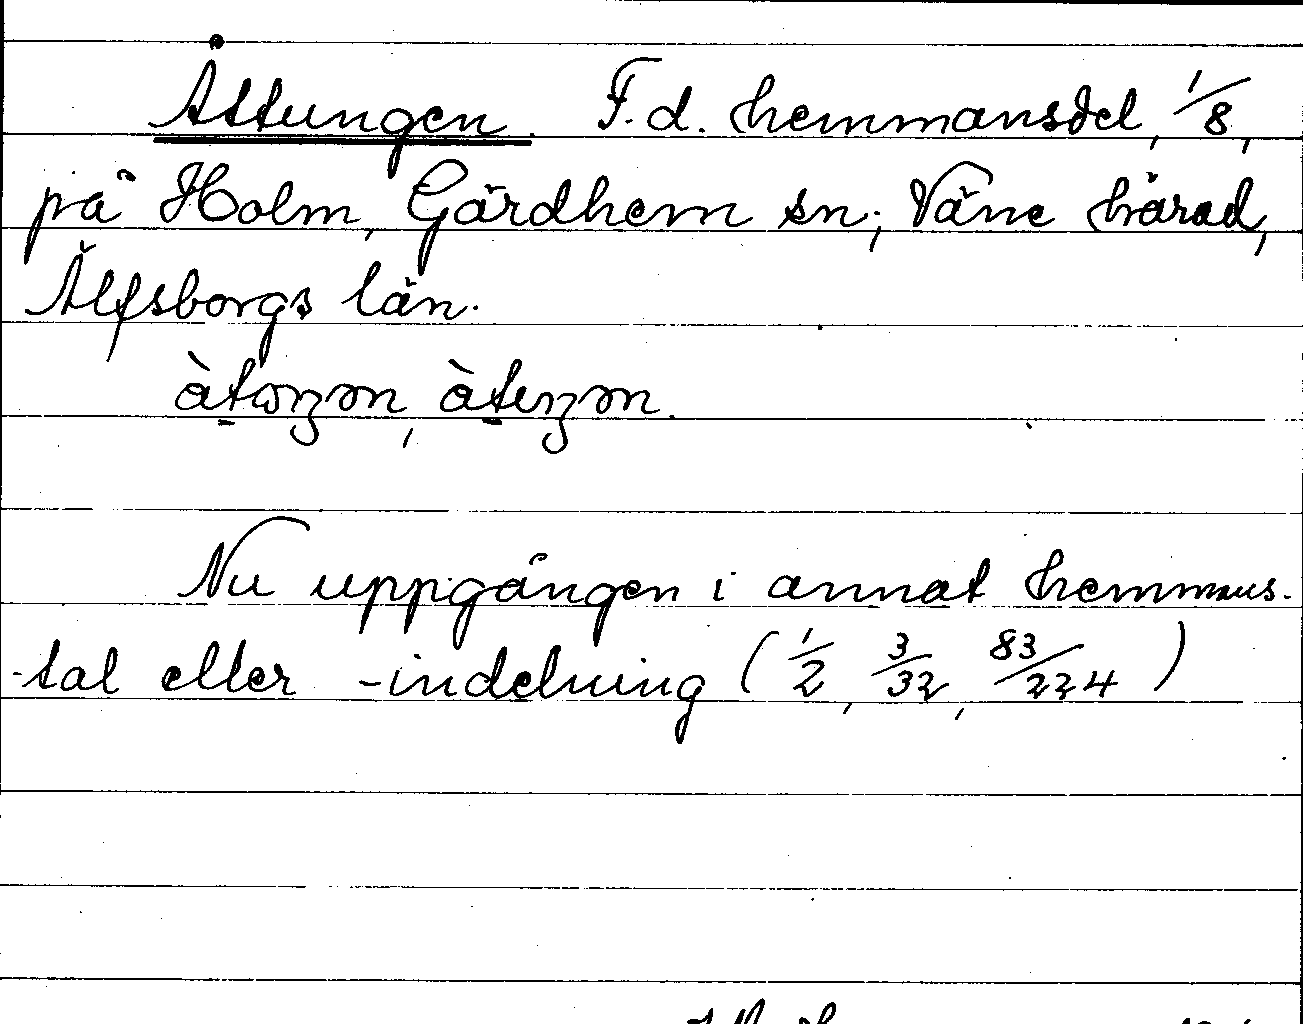 Åttungen. F.d. hemmansdel, 1/8,
på Holm, Gärdhem sn; Väne härad,
Älfsborgs län.
Nu uppgången i annat hemmans-
-tal eller -indelning (1/2, 3/32, 83/224)